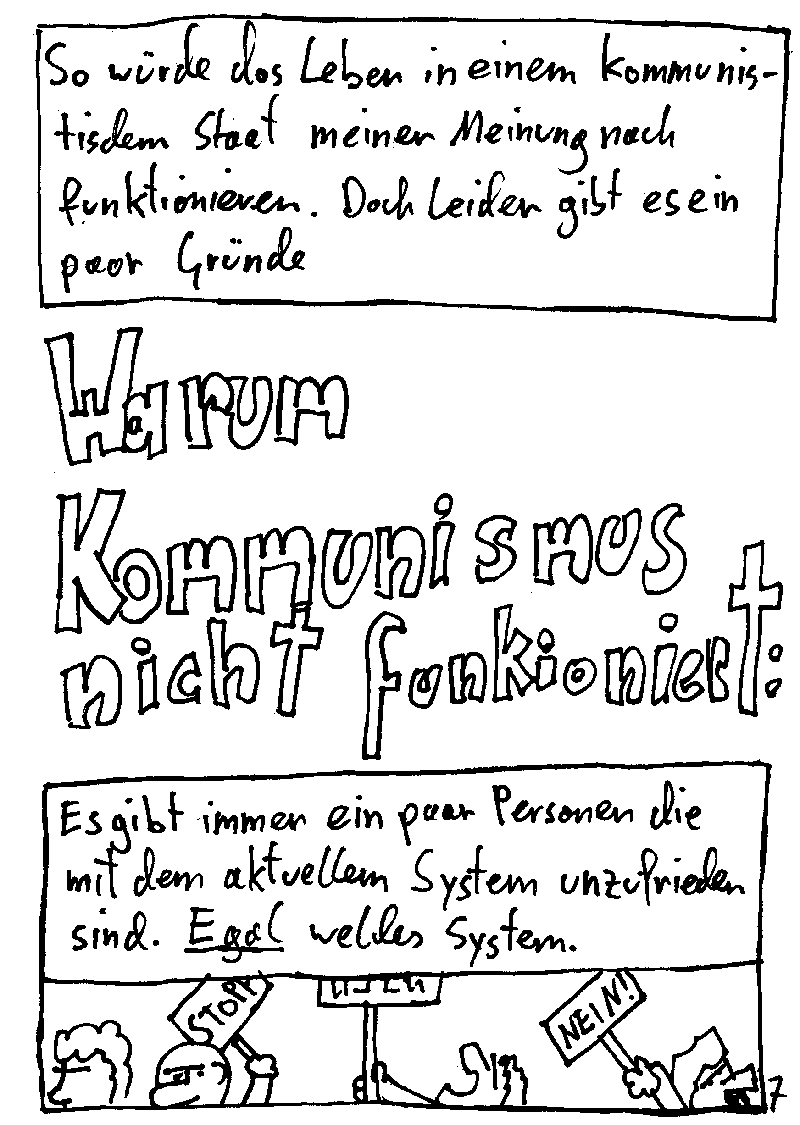 So würde das Leben in einem kommunis-
tischem Staat meiner Meinung nach
funktionieren. Doch leider gibt es ein
paar Gründe
Warum
Kommunismus
nicht funkioniert:
Es gibt immer ein paar Personen die
mit dem aktuellem System unzufrieden
sind. Egal welches System.
STOPP
NEIN!
7